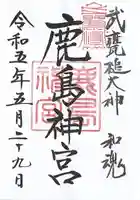 武甕槌大神 和魂
鹿島神宮
令和五年五月二十九日